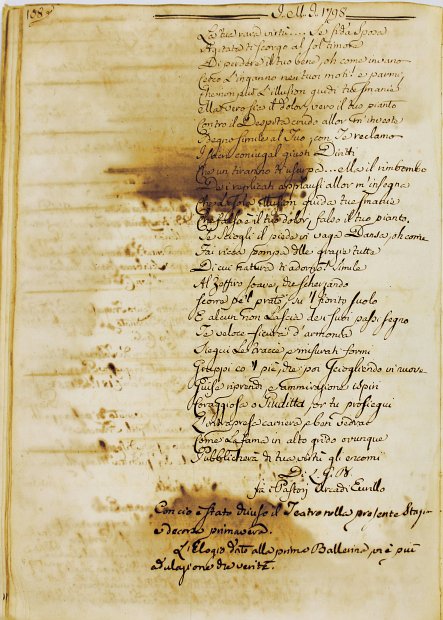 158
J. M. J. 1798.
Le tue rare virtù.... Se fida Sposa
Agitata ti scorgo al sol timore
Di perdere il tuo bene, oh come invano
Celo L'inganno ne tuoi moti! e parmi,
Che non più L'illusion guidi tue smanie
Ma vero sia il dolor, vero il tuo pianto
Contro il Despota crudo allor m'investe
Sdegno simile al Tuo; con Te reclamo
I sacri coniugal giusti Diritti
Che un tiranno ti usurpa... ella il rimbombo
De i replicati applausi allor m'insegna
Che la sola illusion guida tue smanie
Che falso è il tuo dolor, falso il tuo pianto.
Se Sciogli il piede in vaga Dansa, oh come
Fai ricca pompa delle grazie tutte
Di cui natura ti adornò! Simile
Al Zeffiro soave, che scherzando
Scorre pe'l prato, su 'l fiorito suolo
E alcun non Lascia de i suoi passi segno
Te veloce e sicura d'armonia
Siegui Le tracce e misurati formi
Gruppi co 'l piè, che poi sciogliendo in nuove
Guise riprendi, e ammirazione ispiri
Coraggiosa o Giuditta, or tu prosiegui
L'intrapresa carriera, e ben vedrai
Come La fama in alto grido ovunque
Pubblicherà di tua virtù gli encomi
Di L. G. B.
fra i Pastori Arcadi Eurillo
Con ciò è stato chiuso il Teatro nella presente Stag.
e decorsa primavera.
L'Elogio dato alla prima Ballerina, vi è più
adulazione che verità.